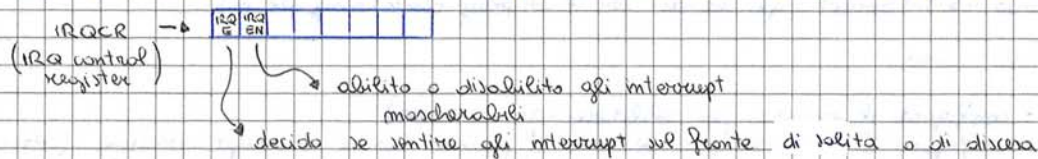 IRQCR → IRQ E IRQ EN
(IRQ control register)
abilito o disabilito gli interrupt mascherabili
decido se sentire gli interrupt sul fronte di salita o di discesa